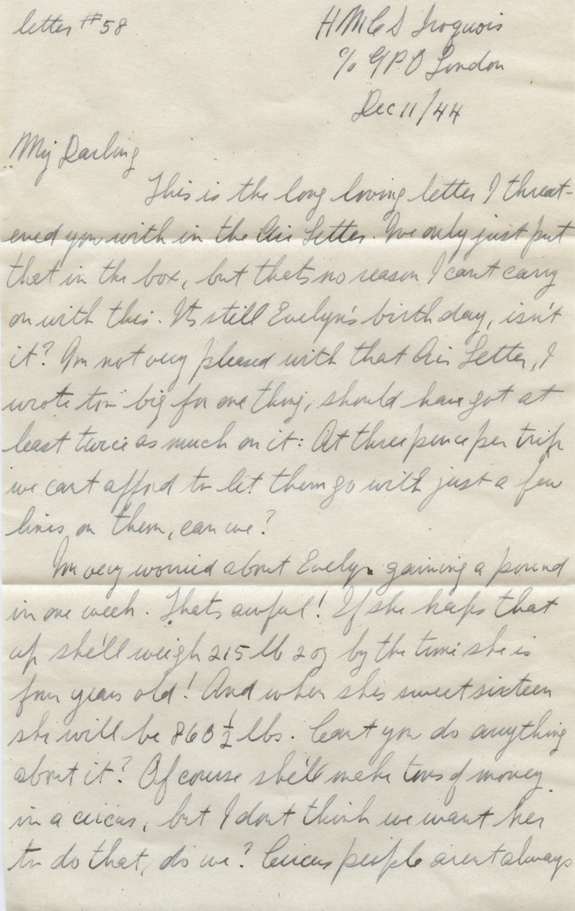 letter #58
HMCS Iroquois
c/o GPO London
Dec 11/44
My Darling
This is the long loving letter I threat-
ened you with in the Air Letter. I've only just put
that in the box, but thats no reason I cant carry
on with this. Its still Evelyn's birthday, isn't
it? Im not very pleased with that Air Letter, I
wrote too big for one thing, should have got at
least twice as much on it: At three pence per trip
we cant afford to let them go with just a few
lines on them, can we?
Im very worried about Evelyn gaining a pound
in one week. Thats awful! If she keeps that
up she'll weigh 215 lb 2 oz by the time she is
four years old! And when shes sweet sixteen
she will be 860 ½ lbs. Cant you do anything
about it? Of course she'll make tons of money
in a circus, but I dont think we want her
to do that, do we? Circus people arent always